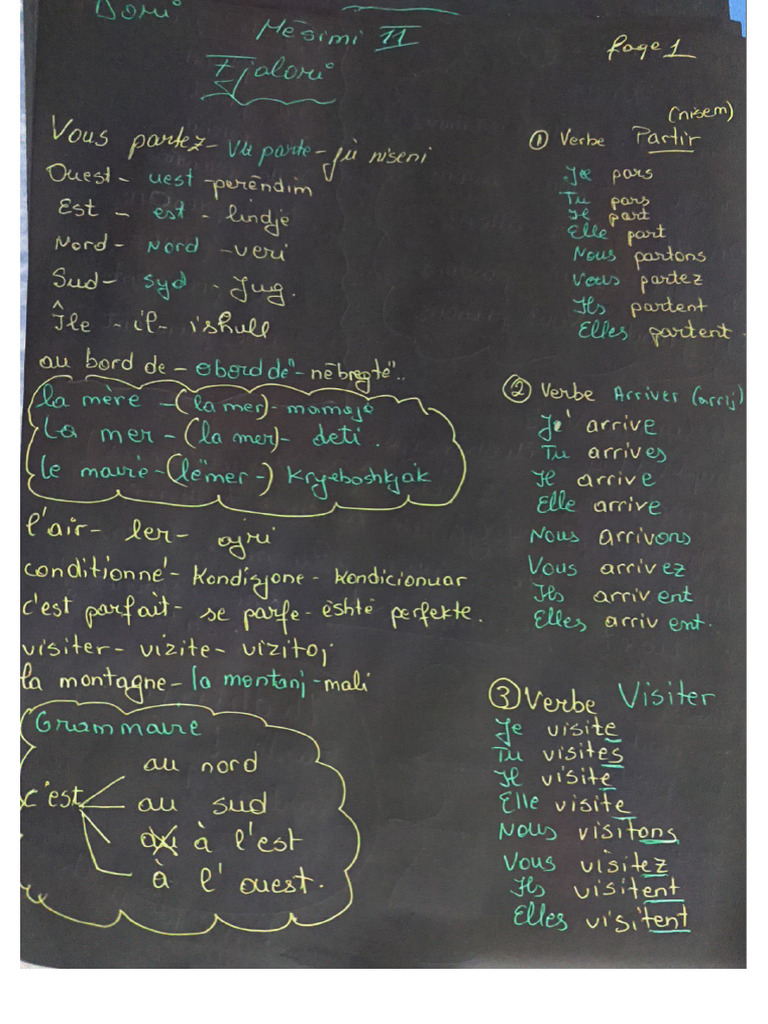 Mësimi 11
Fjalori
page 1
Vous partez - Vu parte - ju niseni
Ouest - uest - perëndim
Est - est - lindje
Nord - Nord - veri
Sud - syd - Jug.
Île - il - ishull
au bord de - o bord dë"- në bregtë"..
la mère - (la mer) - mamaja
La mer - (la mer) - deti.
le maire - (lë mer -) kryebashkjak
l'air - ler - ajri
conditionné - kondizjone - kondicionuar
c'est parfait - se parfe - është perfekte.
visiter - vizite - vizitoj
la montagne - la montanj - mali
Grammaire
c'est
au nord
au sud
à l'est
à l'ouest.
(nisem)
① Verbe Partir
Je pars
Tu pars
Il part
Elle part
Nous partons
Vous partez
Ils partent
Elles partent.
② Verbe Arriver (arrij)
J' arrive
Tu arrives
Il arrive
Elle arrive
Nous arrivons
Vous arrivez
Ils arrivent
Elles arrivent.
③ Verbe Visiter
Je visite
Tu visites
Il visite
Elle visite
Nous visitons
Vous visitez
Ils visitent
Elles visitent